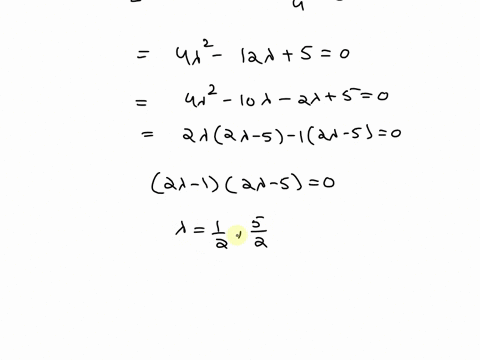 4
= 4λ² - 12λ + 5 = 0
= 4λ² - 10λ - 2λ + 5 = 0
= 2λ(2λ-5) - 1(2λ-5) = 0
(2λ-1)(2λ-5) = 0
λ = 1/2, 5/2